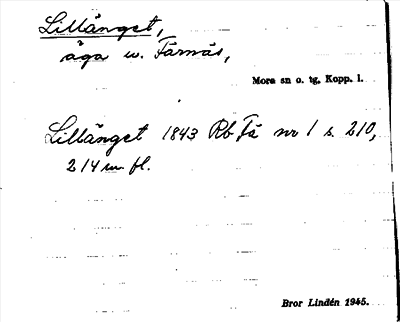 Lillänget,
äga v. Färnäs,
Mora sn o. tg, Kopp. l.
Lillänget 1843 Rb Fä nr 1 s. 210,
214 m. fl.
Bror Lindén 1945.